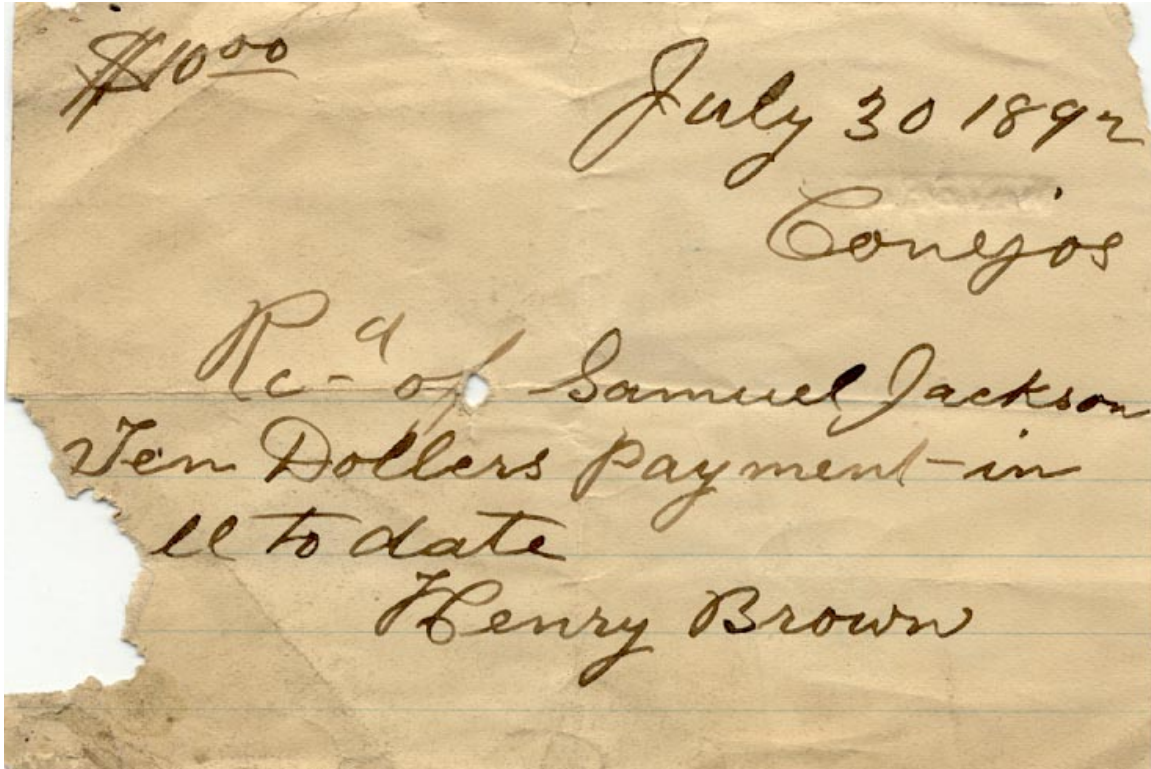 $10.00
July 30 1892
Conejos
Rc-d of Samuel Jackson
Ten Dollers payment in
ll to date
Henry Brown